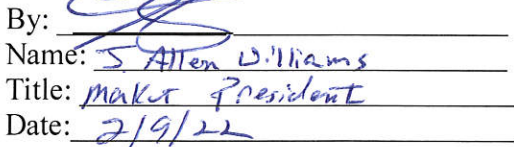 By:
Name: J Allen Williams
Title: Market President
Date: 2/9/22